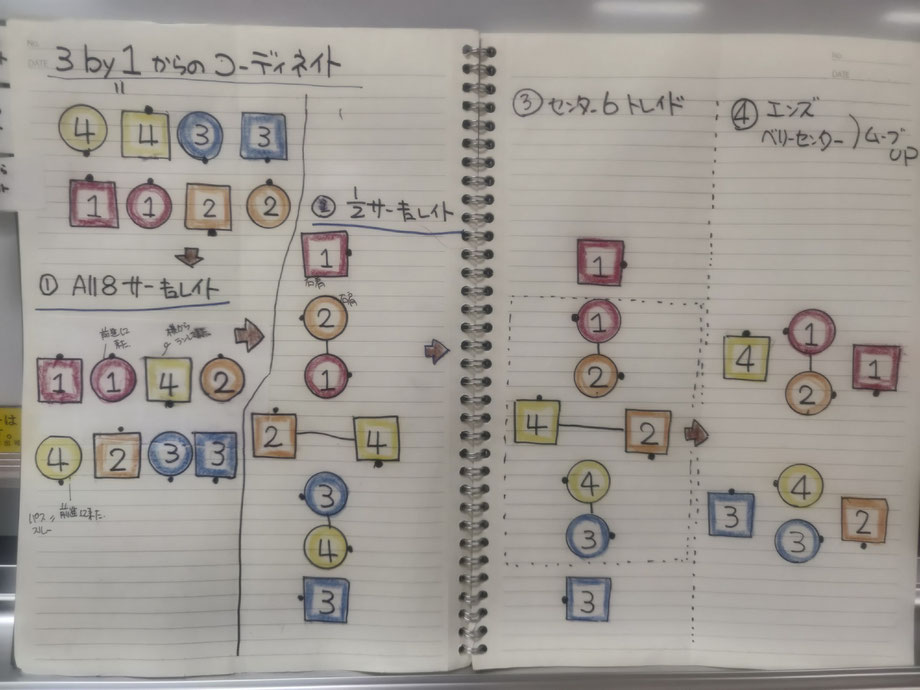 NO.
DATE
3 by 1 からの コーディネイト
"
4 4 3 3
1 1 2 2
① All 8 サーキュレイト
前進して
来た
1 1 4 2
4 2 3 3
パス
スルー
前進して来た
② 1/2 サーキュレイト
1
右肩
2
右肩
1
2 4
3
4
3
③ センター6 トレイド
1
1
2
4 2
4
3
3
NO.
DATE
④ エンズ
ベリーセンター ) ムーブ
UP
1
4 1
2
4
3 2
3